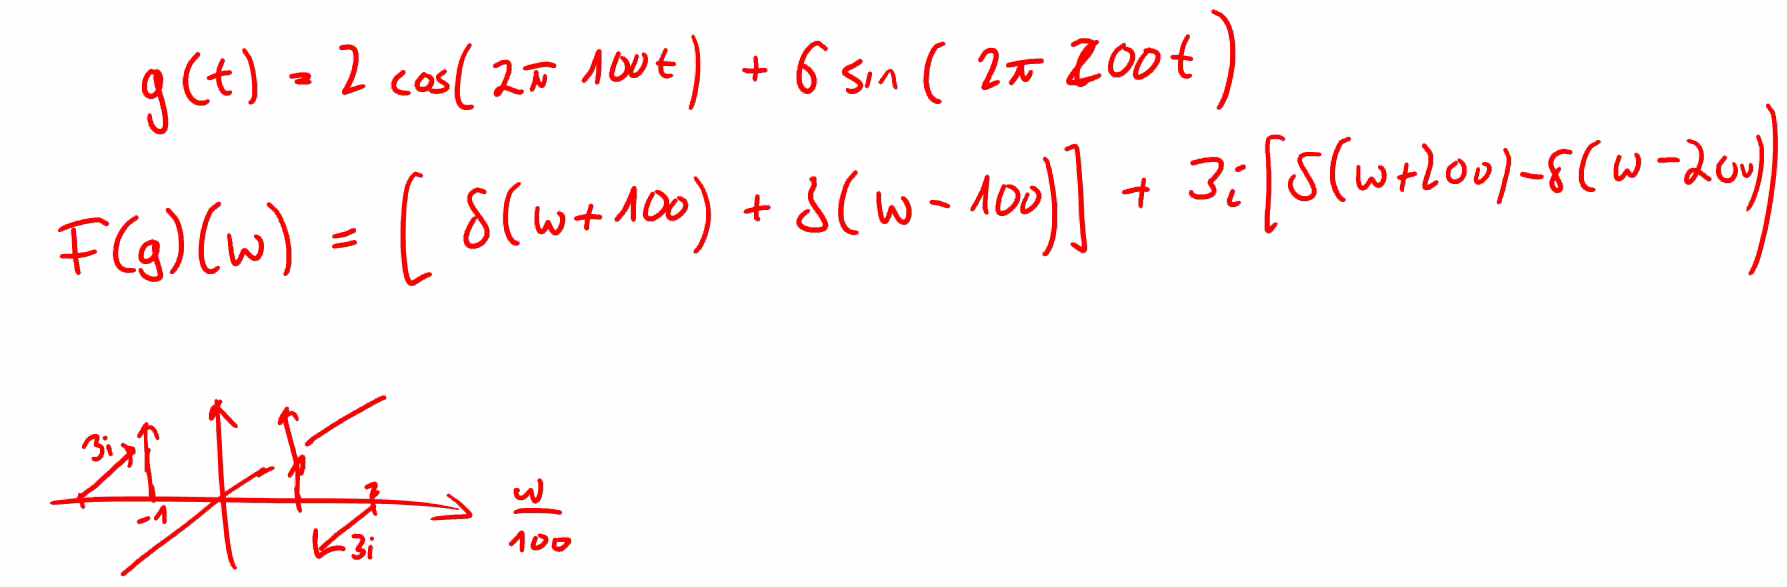 g(t) = 2 cos(2π 100t) + 6 sin(2π 200t)
F(g)(w) = [δ(w+100) + δ(w-100)] + 3i[δ(w+200)-δ(w-200)]
3i
-1
1
2
3i
w
100